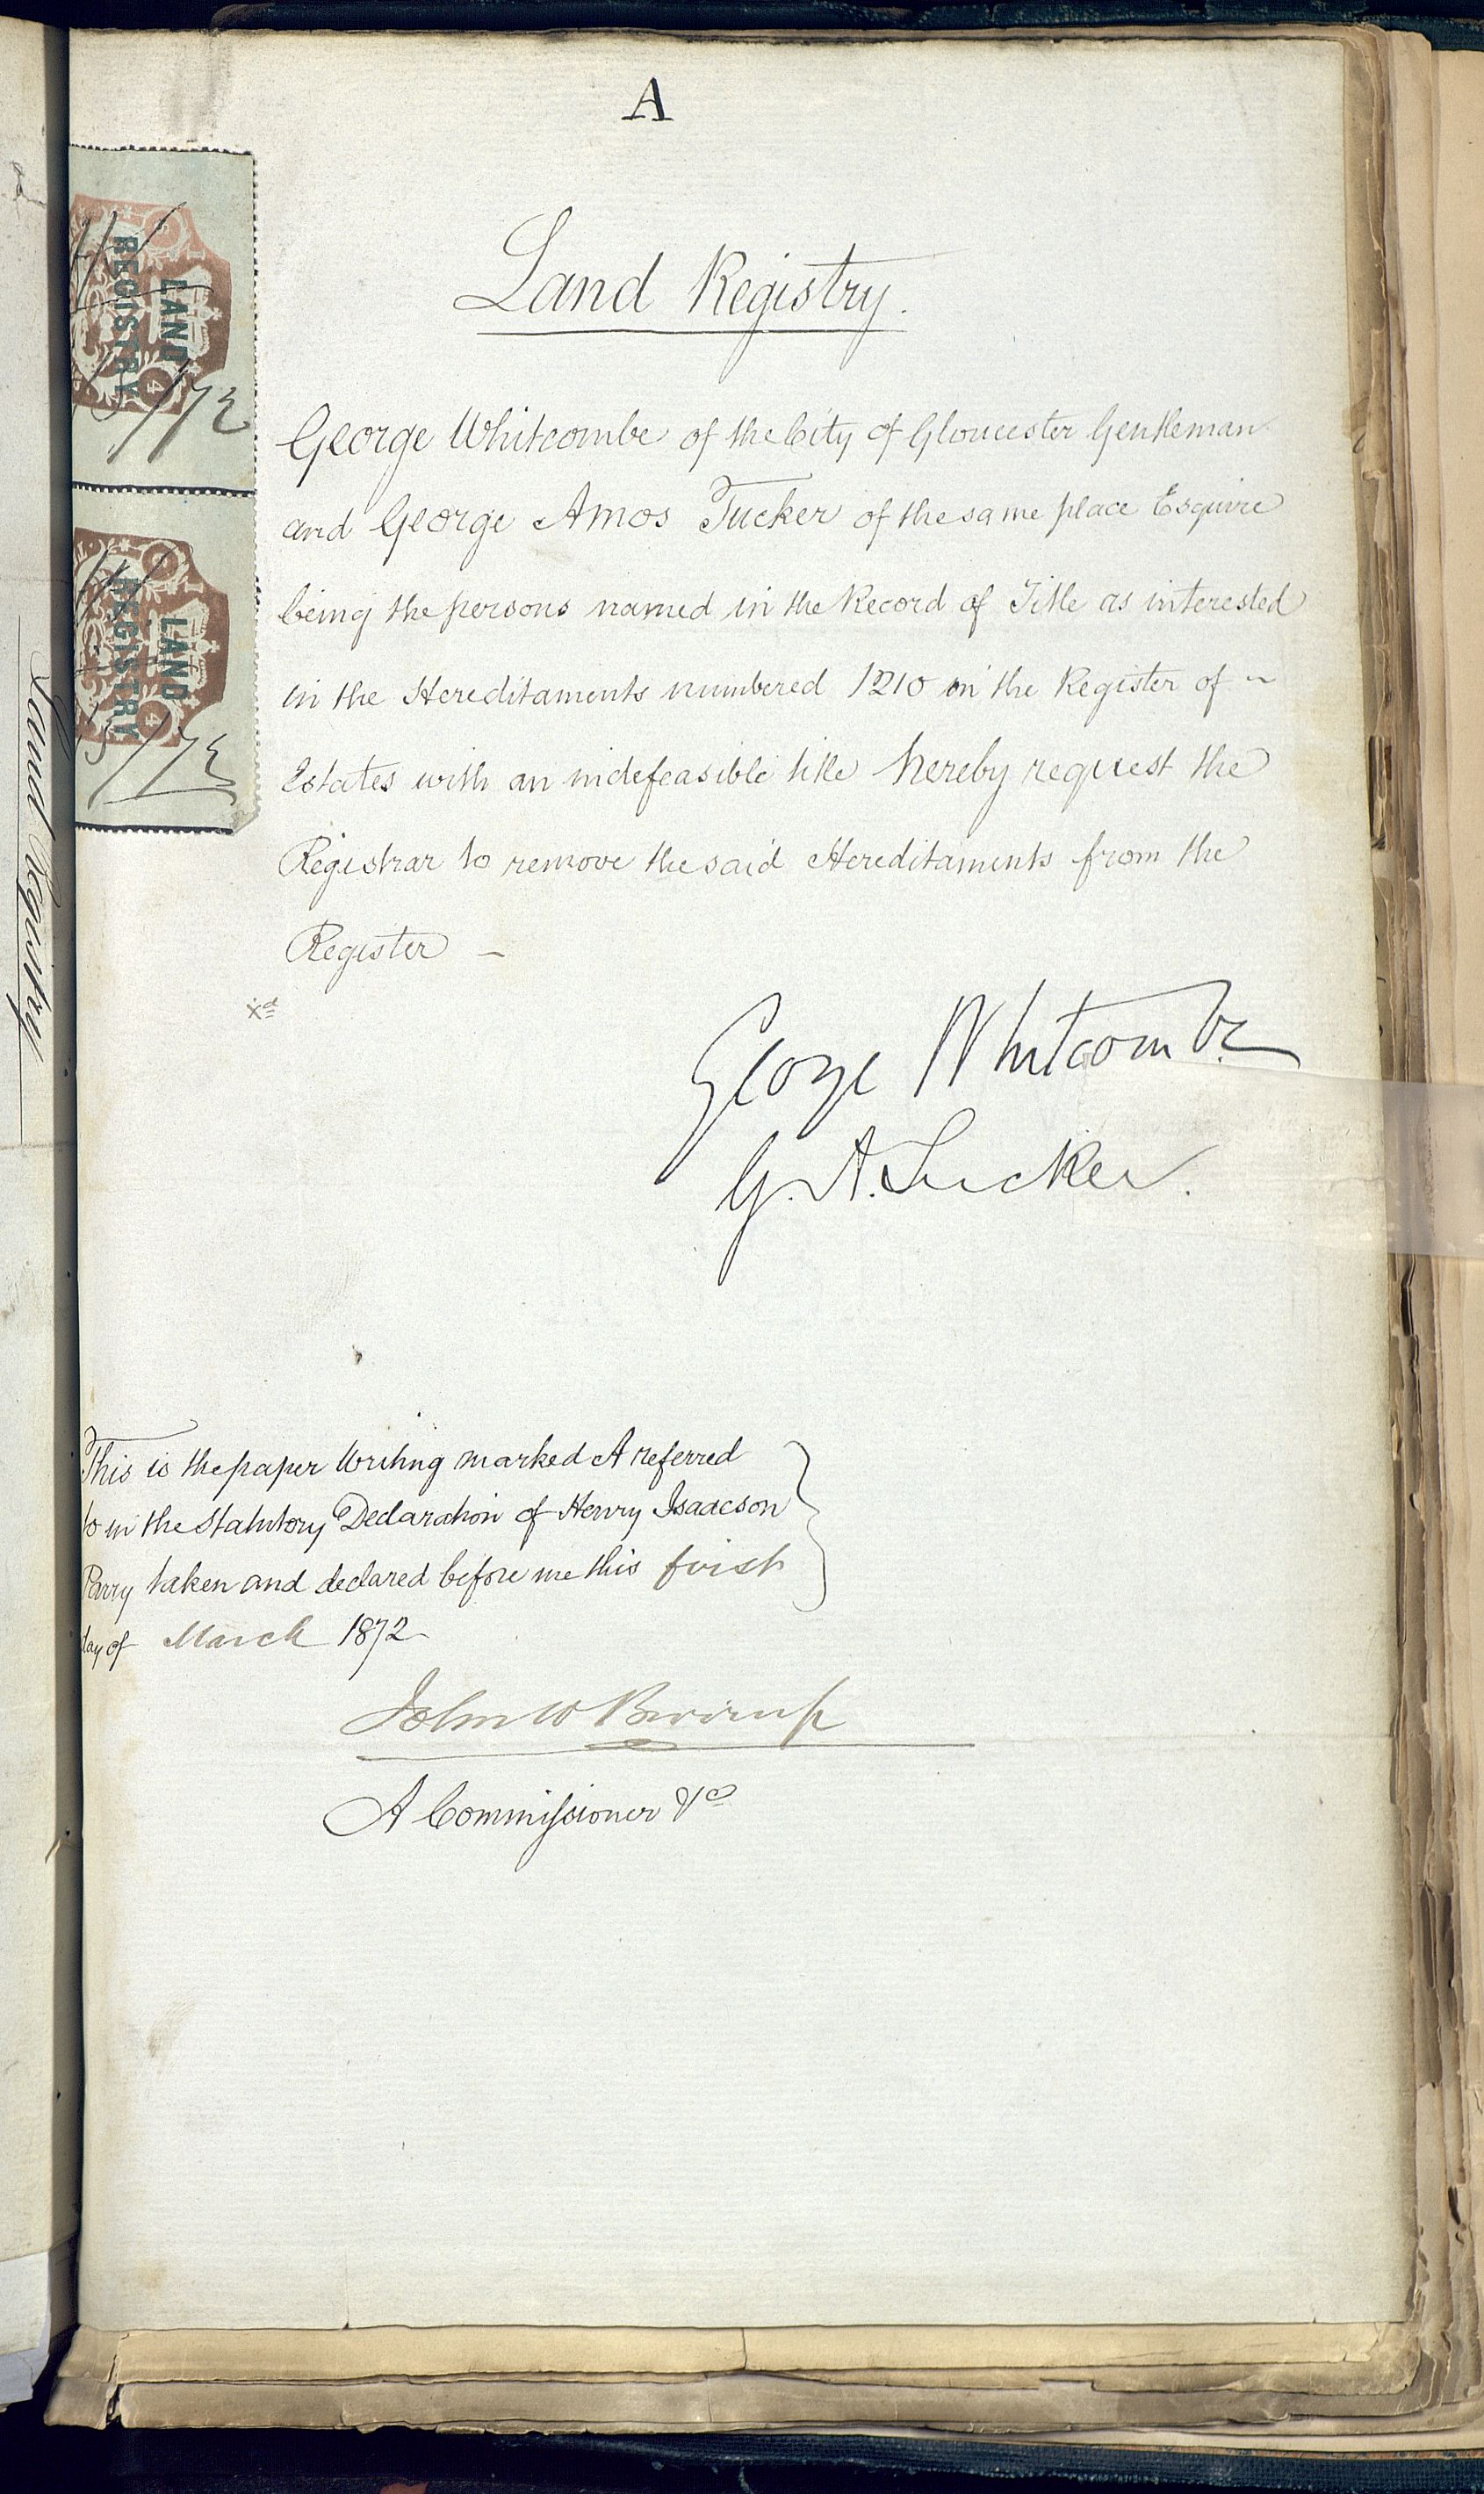 A
Land Registry.
LAND
REGISTRY
LAND
REGISTRY
George Whitcombe of the City of Gloucester Gentleman
and George Amos Tucker of the same place Esquire
being the persons named in the Record of Title as interested
in the Hereditaments numbered 1210 on the Register of
Estates with an indefeasible title hereby request the
Registrar to remove the said Hereditaments from the
Register –
xd
George Whitcombe
G. A. Tucker.
This is the paper Writing marked A referred
to in the Statutory Declaration of Henry Isaacson
Parry taken and declared before me this first
day of March 1872
John W
A Commissioner &c
Land Registry